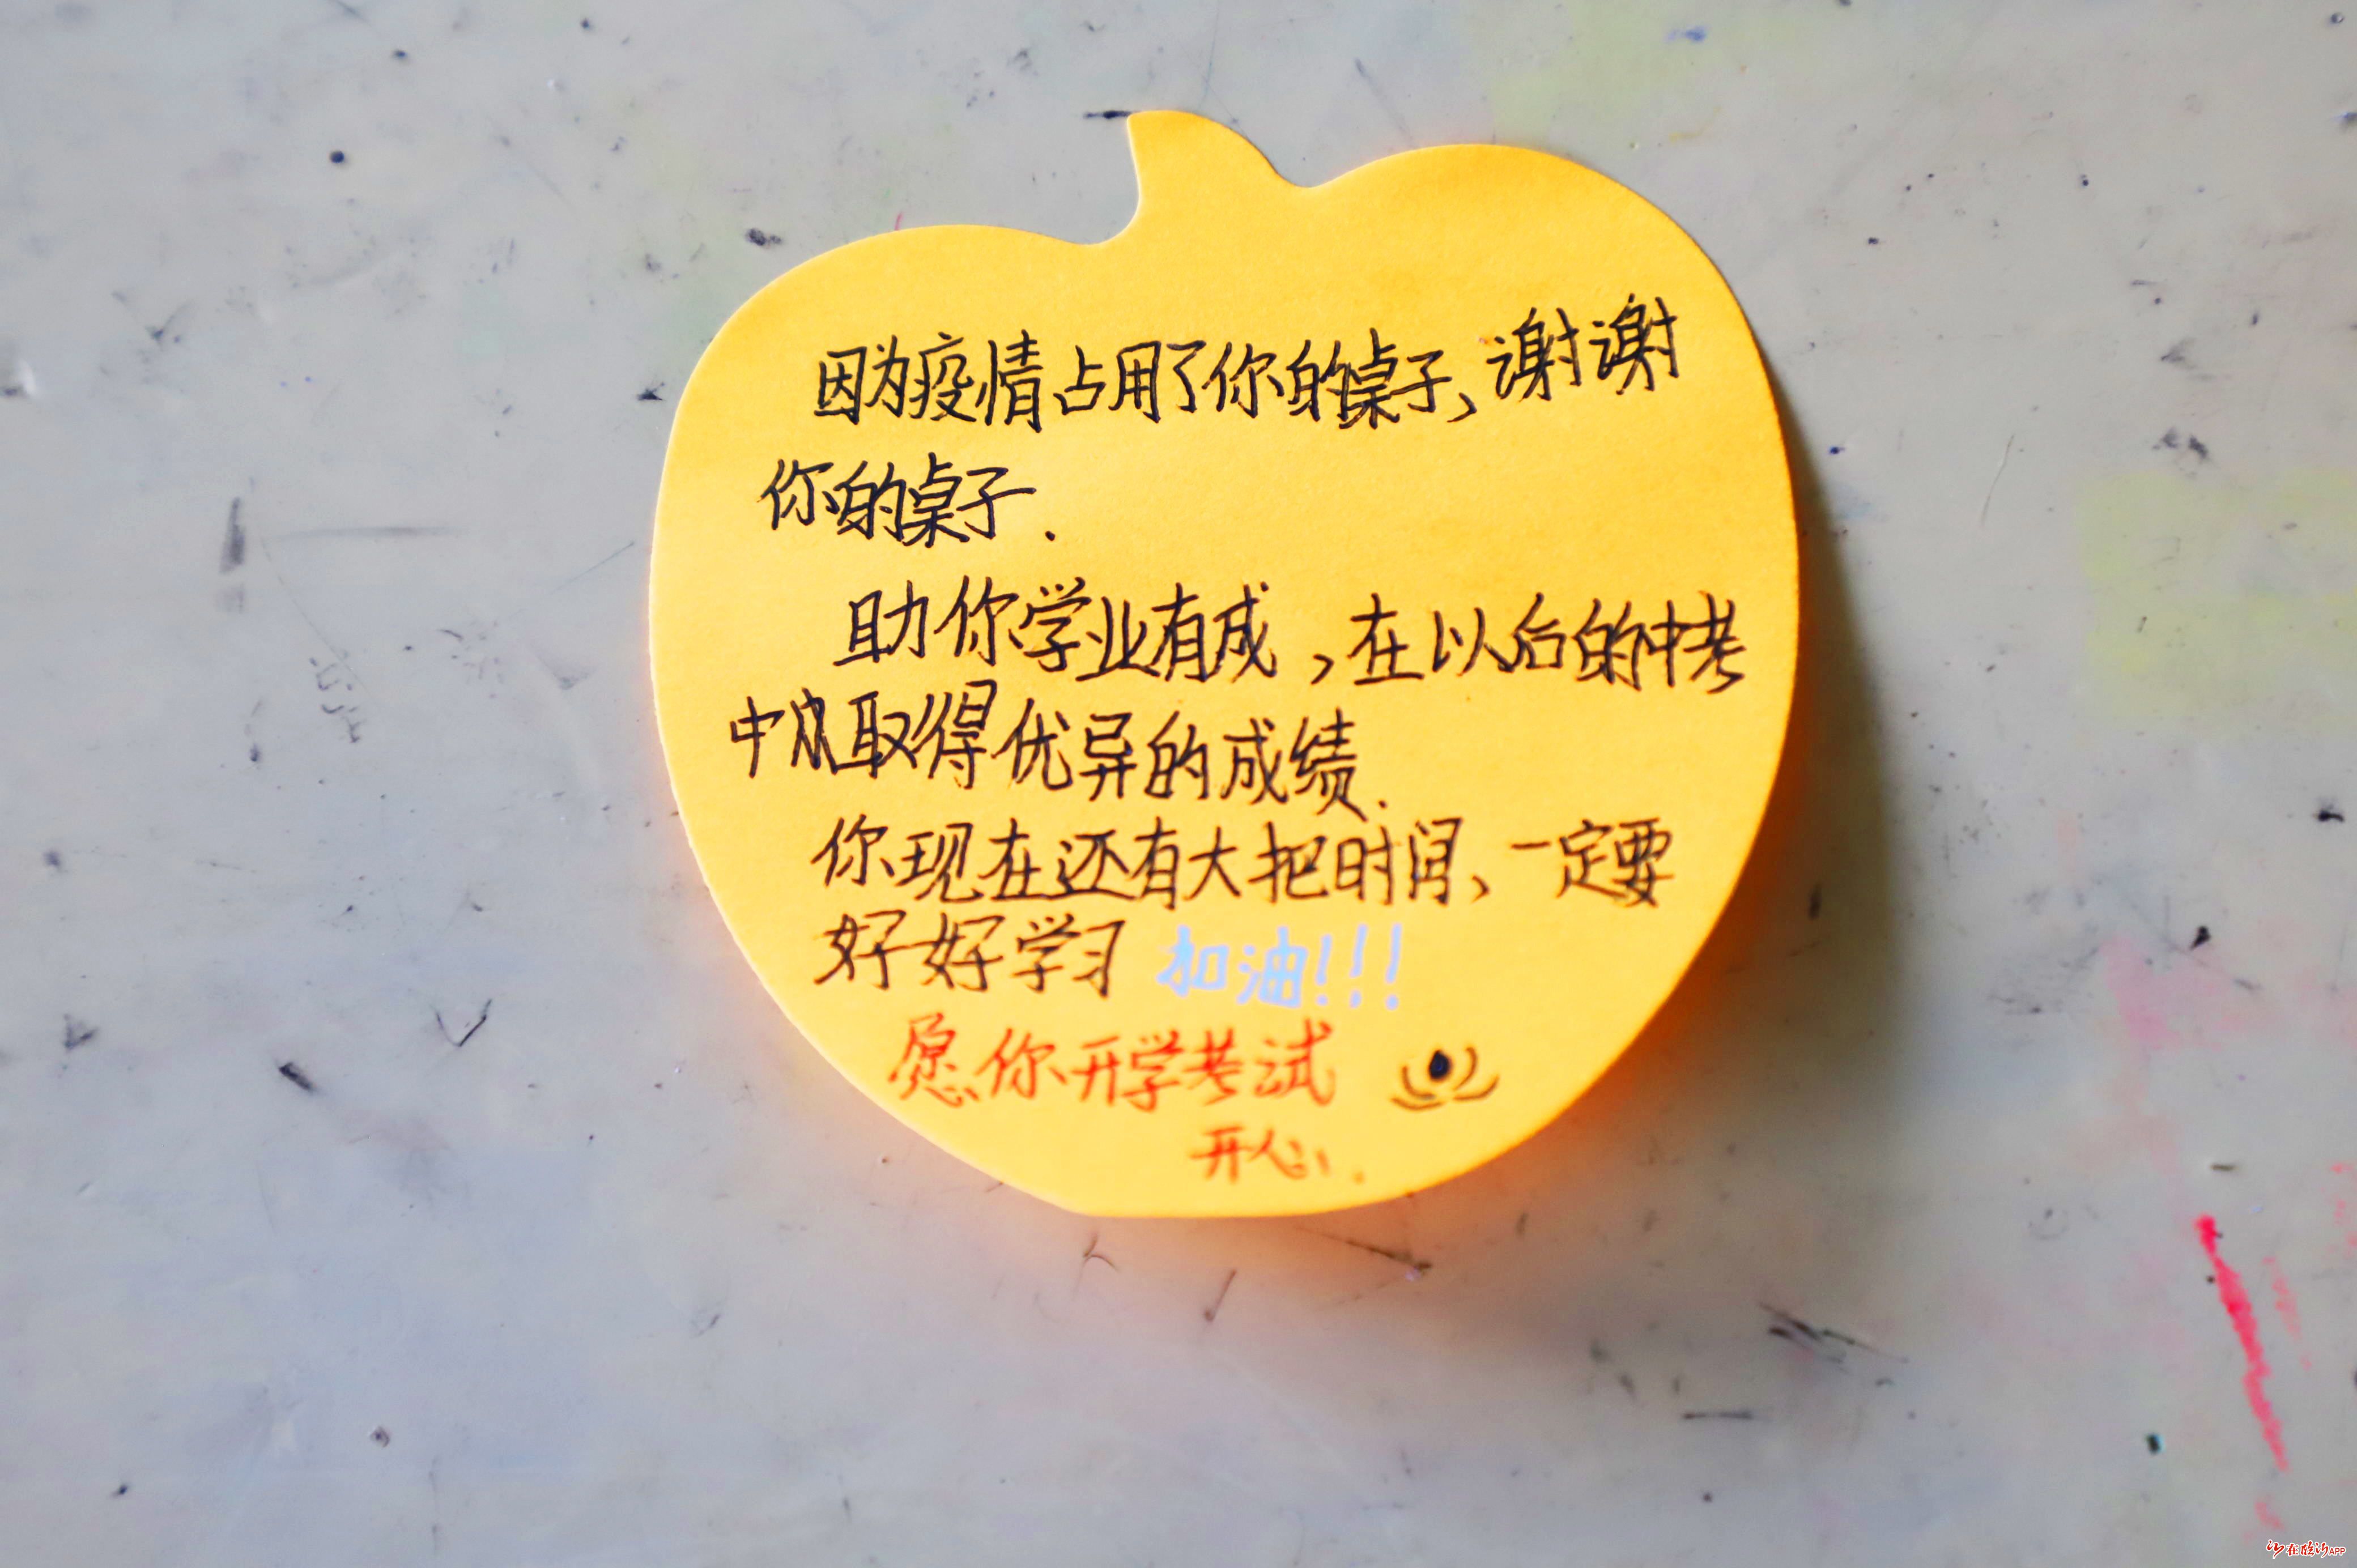 因为疫情占用了你的桌子、谢谢
你的桌子.
助你学业有成,在以后的中考
中取得优异的成绩.
你现在还有大把时间、一定要
好好学习 加油!!!
愿你开学考试
开心.
在临沂APP